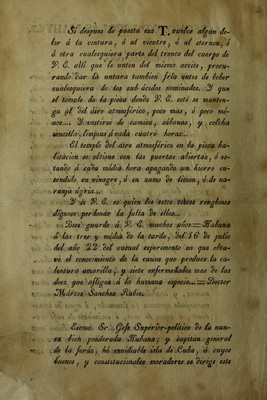 Si despues de puesta esa T. vuelos algun do-
lor á la cintura, ó al vientre, ó al sternon, ó
á otra cualesquiera parte del tronco del cuerpo de
V. E. allí que le unten del mismo aceite, procu-
rando dar la untura tambien fria antes de beber
cualesquiera de los sub ácidos nominados. Y que
el temple de la pieza donde V. E. esté se manten-
ga al del aire atmosférico, poco mas, ó poco mé-
nos... Y vestirse de camisa, sábanas, y colcha
sencilla, limpias á cada cuatro horas...
El temple del aire atmosférico en la pieza ha-
bitacion se obtiene con las puertas abiertas, ó es-
tando á cada média hora apagando un hierro en-
cendido en vinagre, ó en zumo de limon, ó de na-
ranja ágria...
Y si V. E. es quien lee estos toscos renglones
dígnese perdonar la falta de ellos...
Dios guarde á V. E. muchos años = Habana
á las tres y média de la tarde, del 16 de julio
del año 22 del actual esperimento en que obtu-
vé el conocimiento de la causa que produce la ca-
lentura amarilla, y siete enfermedades mas de las
diez que afligen á la humana especie... = Doctor
Márcos Sanchez Rubio.
Escmô. Sr. Gefe Superior-político de la nun-
ca bien ponderada Habana; y capitan general
de la feráz, bé envidiable isla de Cuba, á cuyos
buenos, y constitucionales moradores se dirige este